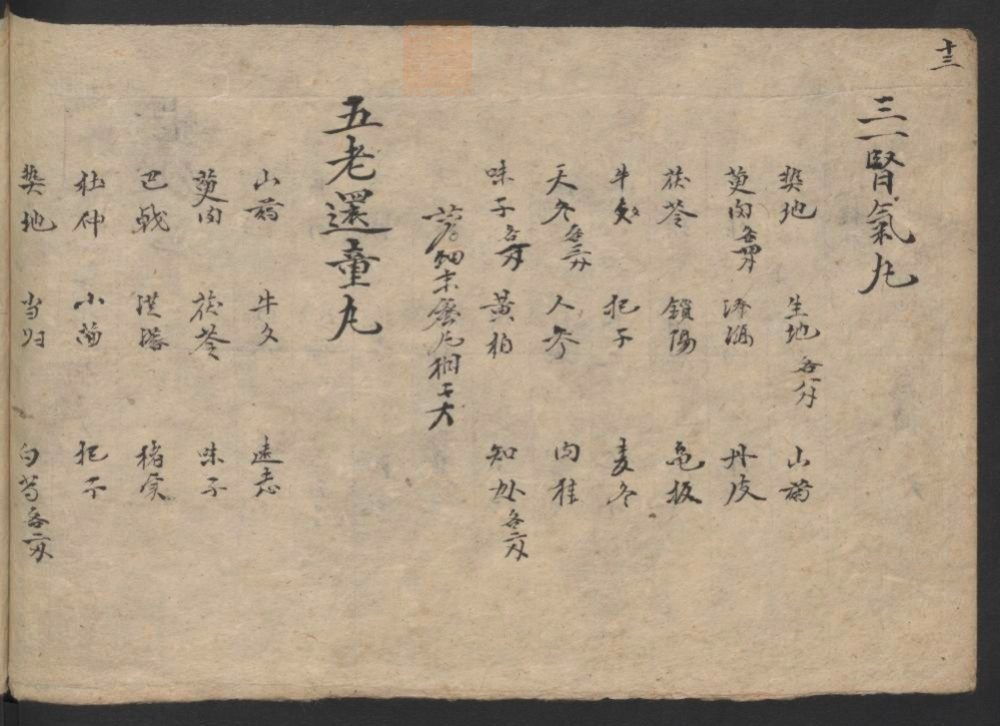 十三
三一腎氣丸
熟地 生地 各分 山藥
萸肉 各四分 澤瀉 丹皮
茯苓 鎖陽 龟板
牛夕 杞子 麦冬
天冬 各三分 人参 肉桂
味子 各分 黄柏 知母 各二分
蜜丸梧子大
五老還童丸
山藥 牛夕 遠志
萸肉 茯苓 味子
巴戟 楮实
杜仲 小茴 杞子
熟地 当归 白芍 各二分